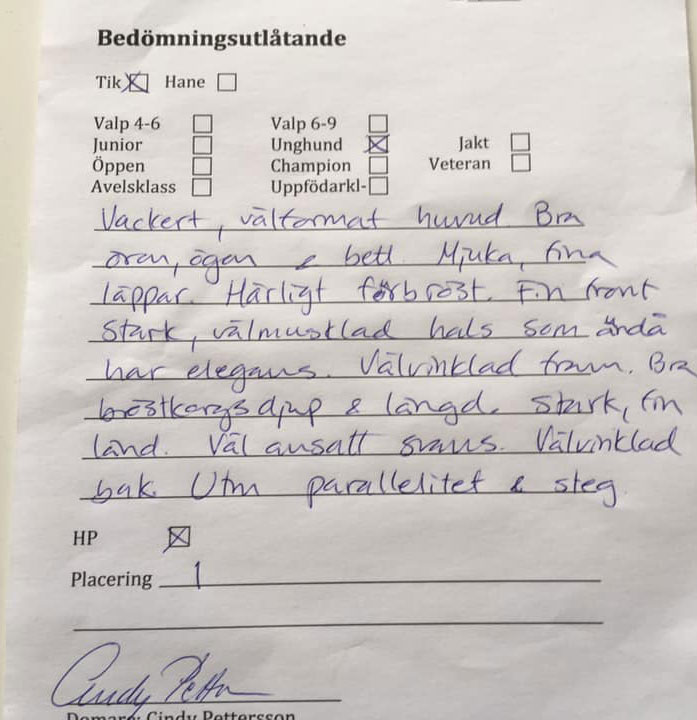 Bedömningsutlåtande
Tik Hane
Valp 4-6 Valp 6-9
Junior Unghund Jakt
Öppen Champion Veteran
Avelsklass Uppfödarkl-
Vackert, välformat huvud. Bra
öron, ögon & bett. Mjuka, fina
läppar. Härligt förbröst. Fin front
Stark, välmusklad hals som ändå
har elegans. Välvinklad fram. Bra
bröstkorgsdjup & längd. Stark, fin
länd. Väl ansatt svans. Välvinklad
bak. Utm parallellitet & steg.
HP
Placering 1
Cindy Petter
Domare: Cindy Pettersson